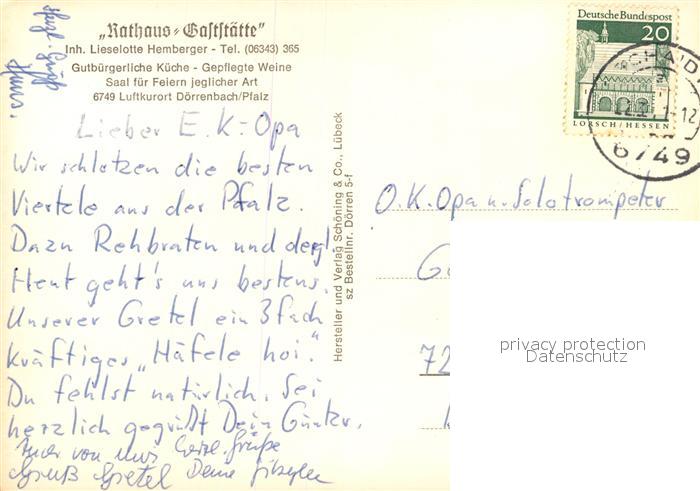 „Rathaus-Gaststätte"
Inh. Lieselotte Hemberger - Tel. (06343) 365
Gutbürgerliche Küche - Gepflegte Weine
Saal für Feiern jeglicher Art
6749 Luftkurort Dörrenbach/Pfalz
Lieber E.K.-Opa
Wir schlotzen die besten
Viertele aus der Pfalz.
Dazu Rehbraten und dergl.
Heut geht's uns bestens.
Unserer Gretel ein 3fach
kräftiges „Häfele hoi."
Du fehlst natürlich. Sei
herzlich gegrüßt Dein
Auch von mir herzl. Grüße
Gruß Gretel Deine
Hersteller und Verlag Schöning & Co., Lübeck
sz Bestellnr. Dörren 5-f
Deutsche Bundespost
20
LORSCH/HESSEN
6749
O.K. Opa u. Solotrompeter
72
privacy protection
Datenschutz